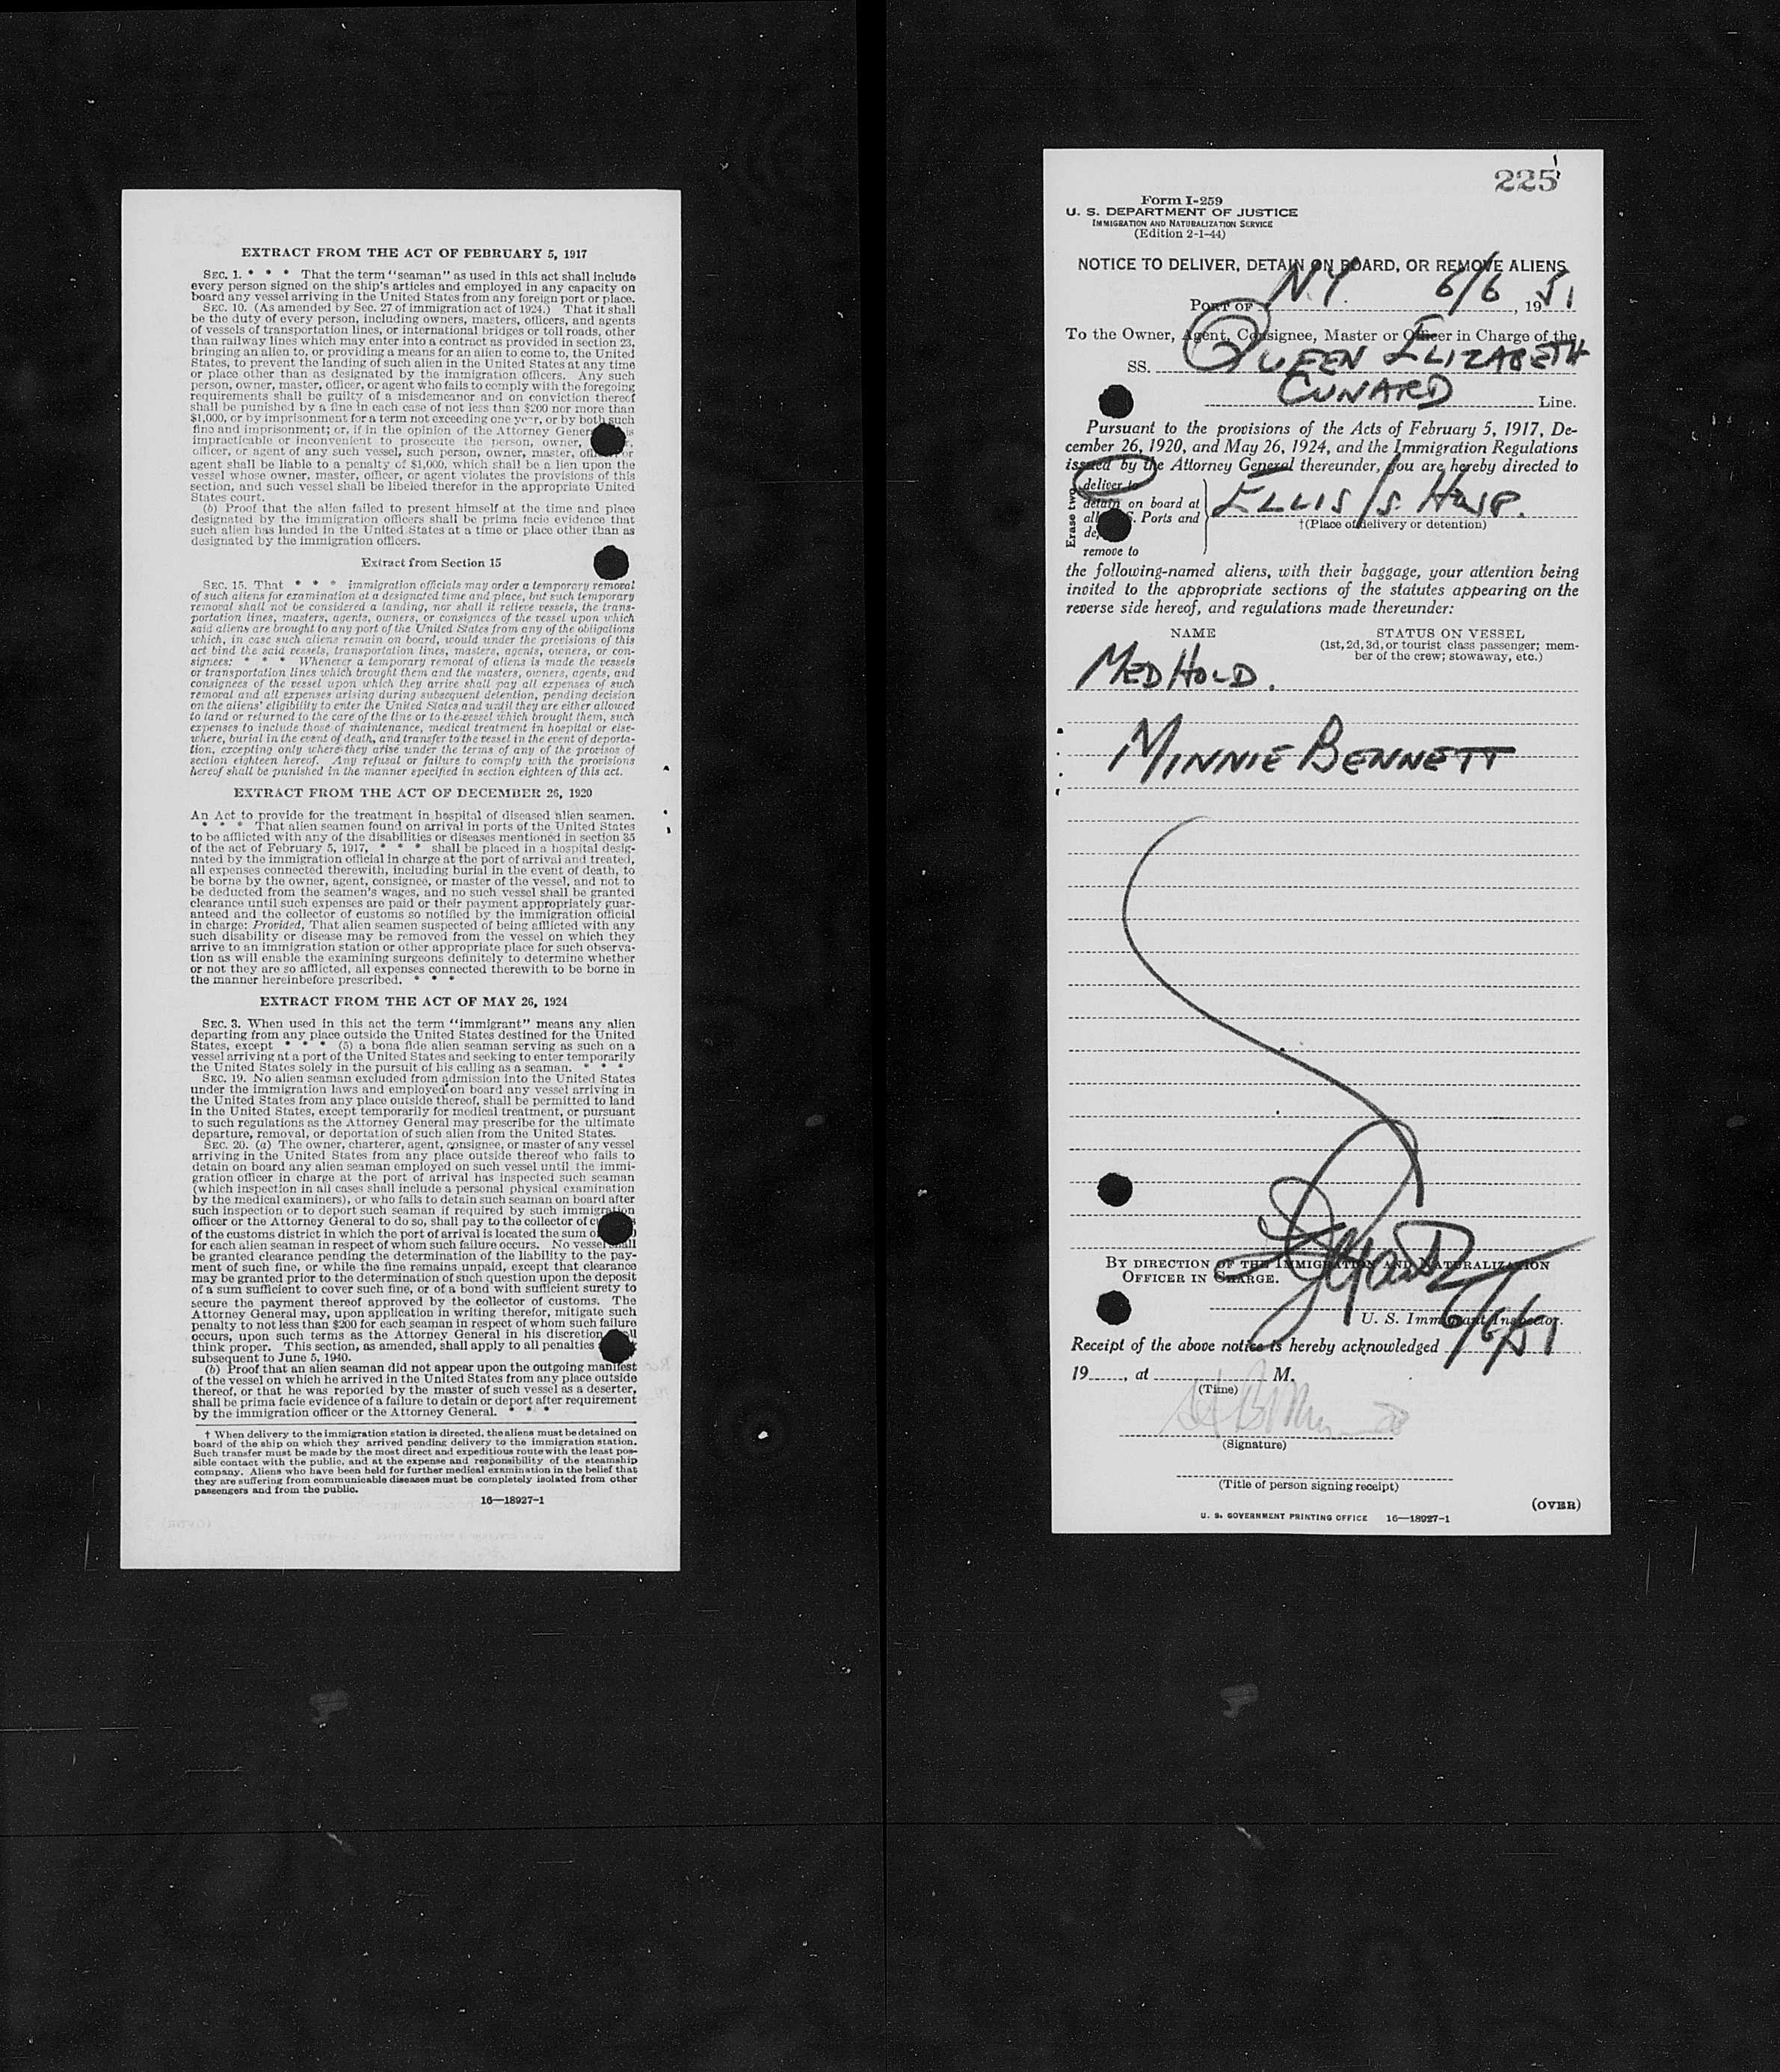 EXTRACT FROM THE ACT OF FEBRUARY 5, 1917
SEC. 1. * * * That the term "seaman" as used in this act shall include
every person signed on the ship's articles and employed in any capacity on
board any vessel arriving in the United States from any foreign port or place.
SEC. 10. (As amended by Sec. 27 of immigration act of 1924.) That it shall
be the duty of every person, including owners, masters, officers, and agents
of vessels of transportation lines, or international bridges or toll roads, other
than railway lines which may enter into a contract as provided in section 23,
bringing an alien to, or providing a means for an alien to come to, the United
States, to prevent the landing of such alien in the United States at any time
or place other than as designated by the immigration officers. Any such
person, owner, master, officer, or agent who fails to comply with the foregoing
requirements shall be guilty of a misdemeanor and on conviction thereof
shall be punished by a fine in each case of not less than $200 nor more than
$1,000, or by imprisonment for a term not exceeding one year, or by both such
fine and imprisonment; or, if in the opinion of the Attorney General is
impracticable or inconvenient to prosecute the person, owner,
officer, or agent of any such vessel, such person, owner, master, officer, or
agent shall be liable to a penalty of $1,000, which shall be a lien upon the
vessel whose owner, master, officer, or agent violates the provisions of this
section, and such vessel shall be libeled therefor in the appropriate United
States court.
(b) Proof that the alien failed to present himself at the time and place
designated by the immigration officers shall be prima facie evidence that
such alien has landed in the United States at a time or place other than as
designated by the immigration officers.
Extract from Section 15
SEC. 15. That * * * immigration officials may order a temporary removal
of such aliens for examination at a designated time and place, but such temporary
removal shall not be considered a landing, nor shall it relieve vessels, the trans-
portation lines, masters, agents, owners, or consignees of the vessel upon which
said aliens are brought to any port of the United States from any of the obligations
which, in case such aliens remain on board, would under the provisions of this
act bind the said vessels, transportation lines, masters, agents, owners, or con-
signees: * * * Whenever a temporary removal of aliens is made the vessels
or transportation lines which brought them and the masters, owners, agents, and
consignees of the vessel upon which they arrive shall pay all expenses of such
removal and all expenses arising during subsequent detention, pending decision
on the aliens' eligibility to enter the United States and until they are either allowed
to land or returned to the care of the line or to the vessel which brought them, such
expenses to include those of maintenance, medical treatment in hospital or else-
where, burial in the event of death, and transfer to the vessel in the event of deporta-
tion, excepting only where they arise under the terms of any of the provisos of
section eighteen hereof. Any refusal or failure to comply with the provisions
hereof shall be punished in the manner specified in section eighteen of this act.
EXTRACT FROM THE ACT OF DECEMBER 26, 1920
An Act to provide for the treatment in hospital of diseased alien seamen.
* * * That alien seamen found on arrival in ports of the United States
to be afflicted with any of the disabilities or diseases mentioned in section 35
of the act of February 5, 1917, * * * shall be placed in a hospital desig-
nated by the immigration official in charge at the port of arrival and treated,
all expenses connected therewith, including burial in the event of death, to
be borne by the owner, agent, consignee, or master of the vessel, and not to
be deducted from the seamen's wages, and no such vessel shall be granted
clearance until such expenses are paid or their payment appropriately guar-
anteed and the collector of customs so notified by the immigration official
in charge: Provided, That alien seamen suspected of being afflicted with any
such disability or disease may be removed from the vessel on which they
arrive to an immigration station or other appropriate place for such observa-
tion as will enable the examining surgeons definitely to determine whether
or not they are so afflicted, all expenses connected therewith to be borne in
the manner hereinbefore prescribed. * * *
EXTRACT FROM THE ACT OF MAY 26, 1924
SEC. 3. When used in this act the term "immigrant" means any alien
departing from any place outside the United States destined for the United
States, except * * * (5) a bona fide alien seaman serving as such on a
vessel arriving at a port of the United States and seeking to enter temporarily
the United States solely in the pursuit of his calling as a seaman. * * *
SEC. 19. No alien seaman excluded from admission into the United States
under the immigration laws and employed on board any vessel arriving in
the United States from any place outside thereof, shall be permitted to land
in the United States, except temporarily for medical treatment, or pursuant
to such regulations as the Attorney General may prescribe for the ultimate
departure, removal, or deportation of such alien from the United States.
SEC. 20. (a) The owner, charterer, agent, consignee, or master of any vessel
arriving in the United States from any place outside thereof who fails to
detain on board any alien seaman employed on such vessel until the immi-
gration officer in charge at the port of arrival has inspected such seaman
(which inspection in all cases shall include a personal physical examination
by the medical examiners), or who fails to detain such seaman on board after
such inspection or to deport such seaman if required by such immigration
officer or the Attorney General to do so, shall pay to the collector of
of the customs district in which the port of arrival is located the sum of
for each alien seaman in respect of whom such failure occurs. No vessel shall
be granted clearance pending the determination of the liability to the pay-
ment of such fine, or while the fine remains unpaid, except that clearance
may be granted prior to the determination of such question upon the deposit
of a sum sufficient to cover such fine, or of a bond with sufficient surety to
secure the payment thereof approved by the collector of customs. The
Attorney General may, upon application in writing therefor, mitigate such
penalty to not less than $200 for each seaman in respect of whom such failure
occurs, upon such terms as the Attorney General in his discretion shall
think proper. This section, as amended, shall apply to all penalties
subsequent to June 5, 1940.
(b) Proof that an alien seaman did not appear upon the outgoing manifest
of the vessel on which he arrived in the United States from any place outside
thereof, or that he was reported by the master of such vessel as a deserter,
shall be prima facie evidence of a failure to detain or deport after requirement
by the immigration officer or the Attorney General. * * *
† When delivery to the immigration station is directed, the aliens must be detained on
board of the ship on which they arrived pending delivery to the immigration station.
Such transfer must be made by the most direct and expeditious route with the least pos-
sible contact with the public, and at the expense and responsibility of the steamship
company. Aliens who have been held for further medical examination in the belief that
they are suffering from communicable diseases must be completely isolated from other
passengers and from the public.
16—18927-1
225
Form I-259
U. S. DEPARTMENT OF JUSTICE
IMMIGRATION AND NATURALIZATION SERVICE
(Edition 2-1-44)
NOTICE TO DELIVER, DETAIN ON BOARD, OR REMOVE ALIENS
PORT OF N.Y. 6/6, 1951
To the Owner, Agent, Consignee, Master or Officer in Charge of the
SS. QUEEN ELIZABETH
CUNARD Line.
Pursuant to the provisions of the Acts of February 5, 1917, De-
cember 26, 1920, and May 26, 1924, and the Immigration Regulations
issued by the Attorney General thereunder, you are hereby directed to
Erase two
deliver to
detain on board at
all U. S. Ports and
remove to
ELLIS IS. HOSP.
†(Place of delivery or detention)
the following-named aliens, with their baggage, your attention being
invited to the appropriate sections of the statutes appearing on the
reverse side hereof, and regulations made thereunder:
NAME STATUS ON VESSEL
(1st, 2d, 3d, or tourist class passenger; mem-
ber of the crew; stowaway, etc.)
MED HOLD.
MINNIE BENNETT
BY DIRECTION OF THE IMMIGRATION AND NATURALIZATION
OFFICER IN CHARGE.
U. S. Immigrant Inspector.
Receipt of the above notice is hereby acknowledged 6/6/51
19....., at .................. M.
(Time)
(Signature)
(Title of person signing receipt)
(OVER)
U. S. GOVERNMENT PRINTING OFFICE 16—18927-1